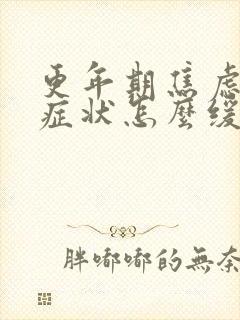 更年期焦虑
症状怎麼缓
胖嘟嘟的無奈